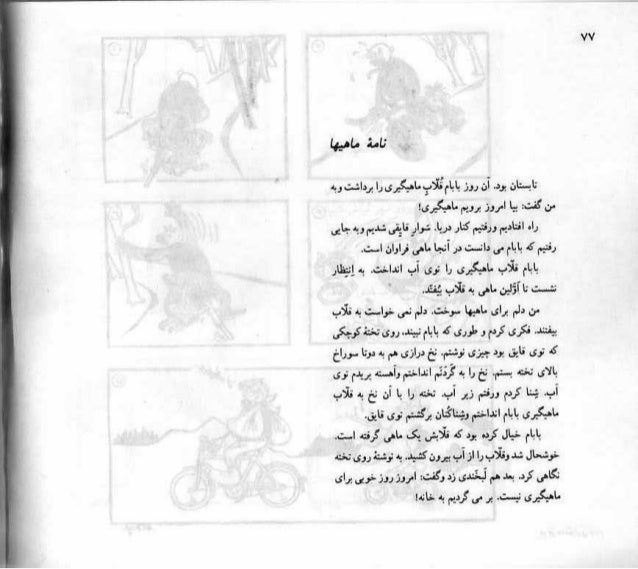 ۷۷
نامهٔ ماهیها
تابستان بود. آن روز بابام قُلّابِ ماهیگیری را برداشت وبه
من گفت: بیا امروز برویم ماهیگیری!
راه افتادیم ورفتیم کنار دریا. سَوارِ قایِقی شدیم وبه جایی
رفتیم که بابام می دانست در آنجا ماهی فراوان است.
بابام قلّاب ماهیگیری را توی آب انداخت. به اِنتِظار
نشست تا اَوَّلین ماهی به قلّاب بیُفتَد.
من دلم برای ماهیها سوخت. دلم نمی خواست به قلّاب
بیفتند. فکری کردم و طوری که بابام نبیند، روی تختهٔ کوچکی
که توی قایق بود چیزی نوشتم. نخ درازی هم به دوتا سوراخ
بالای تخته بستم. نخ را به گَردَنَم انداختم وآهسته پریدم توی
آب. شِنا کردم ورفتم زیر آب. تخته را با آن نخ به قلّاب
ماهیگیری بابام انداختم وشِناکُنان برگشتم توی قایق.
بابام خیال کرده بود که قلّابش یک ماهی گرفته است.
خوشحال شد وقلّاب را از آب بیرون کشید. به نوشتهٔ روی تخته
نگاهی کرد. بعد هم لَبخَندی زد وگفت: امروز روز خوبی برای
ماهیگیری نیست. بر می گردیم به خانه!